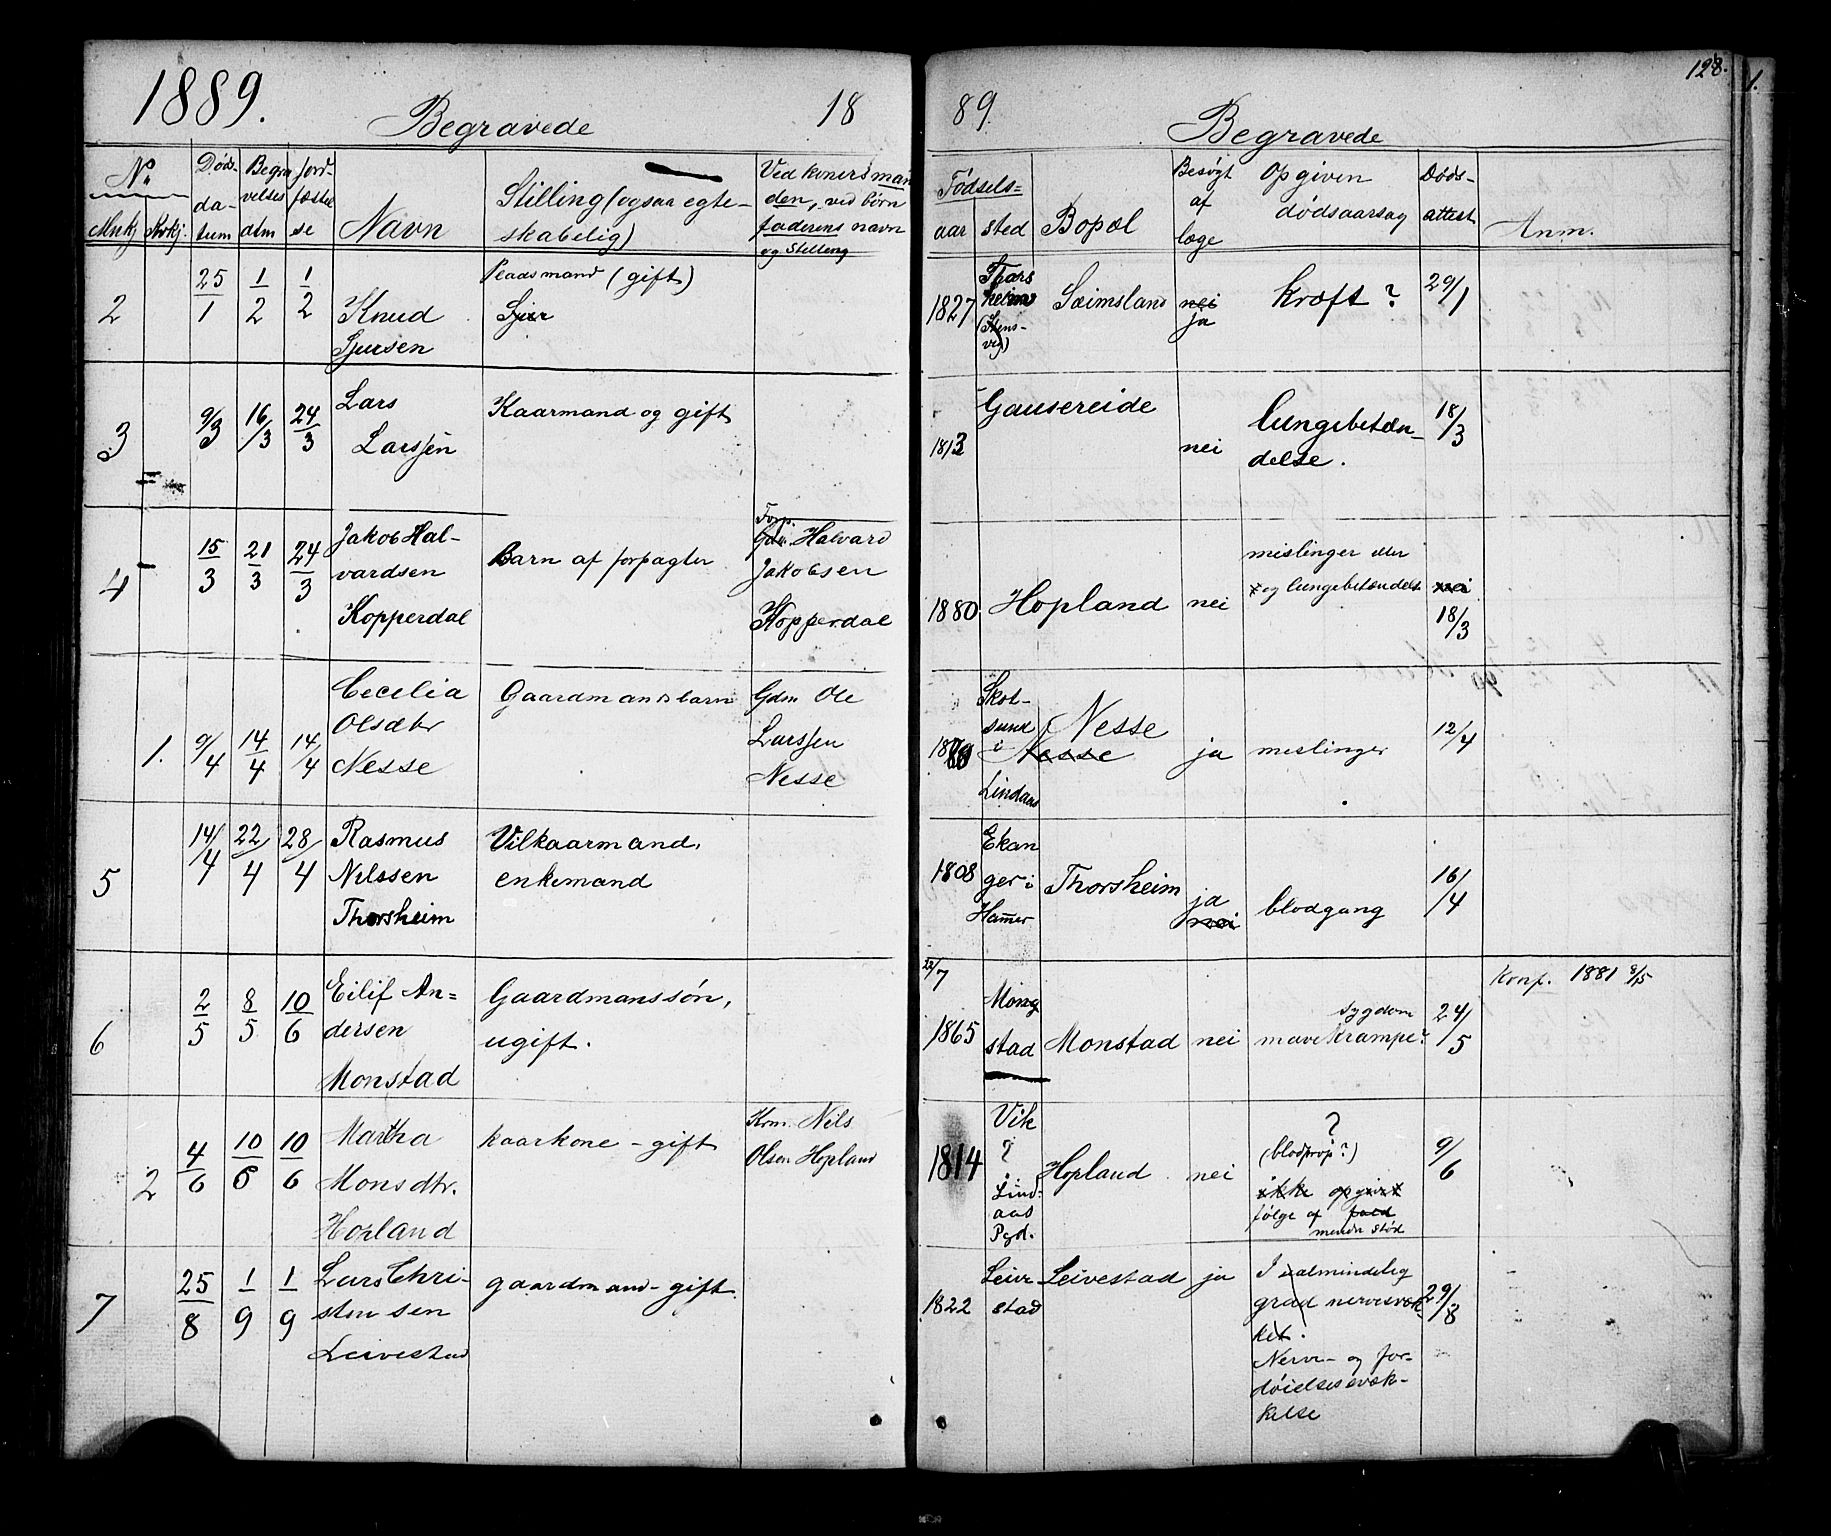 1889.
Begravede
18
89.
Begravede
128.
1.
No
Mnkj
Kvkj.
Døds-
da-
tum
Begra
velses
dtm
Jord-
fæstel
se
Navn
Stilling (ogsaa egte-
skabelig)
Ved koner: man
den, ved børn
faderens navn
og Stilling
Fødsels=
aar
sted
Bopæl
Besøgt
af
læge
Opgiven
dødsaarsag
Døds-
attest
Anm.
2
25/1
1/2
1/2
Knud
Sjursen
Pladsmand (gift)
1827
Sæimsland
nei
ja
kræft?
29/1
3
9/3
16/3
24/3
Lars
Larssen
Kaarmand og gift
1813
Gausereide
nei
lungebetæn-
delse.
18/3
4
15/3
21/3
24/3
Jakob Hal-
vardsen
Kopperdal
Barn af forpagter
Forp.
Halvard
Jakobsen
Kopperdal
1880
Hopland
nei
mislinger eller
og lungebetændels
nei
18/3
1.
9/4
14/4
14/4
Cecelia
Olsdtr
Nesse
Gaardmandsbarn
Gdm Ole
Larssen
Nesse
Skot-
sund
i
Lindaas
Nesse
Nesse
ja
meslinger
12/4
5
14/4
22/4
28/4
Rasmus
Nilssen
Thorsheim
Vilkaarmand,
enkemand
1808
Ekan
ger i
Hamer
Thorsheim
ja
nei
blodgang
16/4
6
2/5
8/5
10/6
Eilif An=
dersen
Monstad
Gaardmanssøn,
ugift.
22/7
1865
Mong
stad
Monstad
nei
sygdom
mavekrampe?
24/5
Konf. 1881 8/5
2
4/6
10/6
10/6
Martha
Monsdtr.
Hopland
kaarkone - gift
Krm. Nils
Olsen Hopland
1814
Vik
?
i
Lind-
aas
Pgd.
Hopland
nei
?
(blodprop?)
ikke opgivet
følge af fald
stød
9/6
7
25/8
1/9
1/9
Lars Chri-
stensen
Leivestad
gaardmand - gift.
1822
Leive
stad
Leivestad
ja
I ualmindelig
grad nervesvæk-
ket.
Nerve- og for-
døielsessvæk-
kelse
29/8